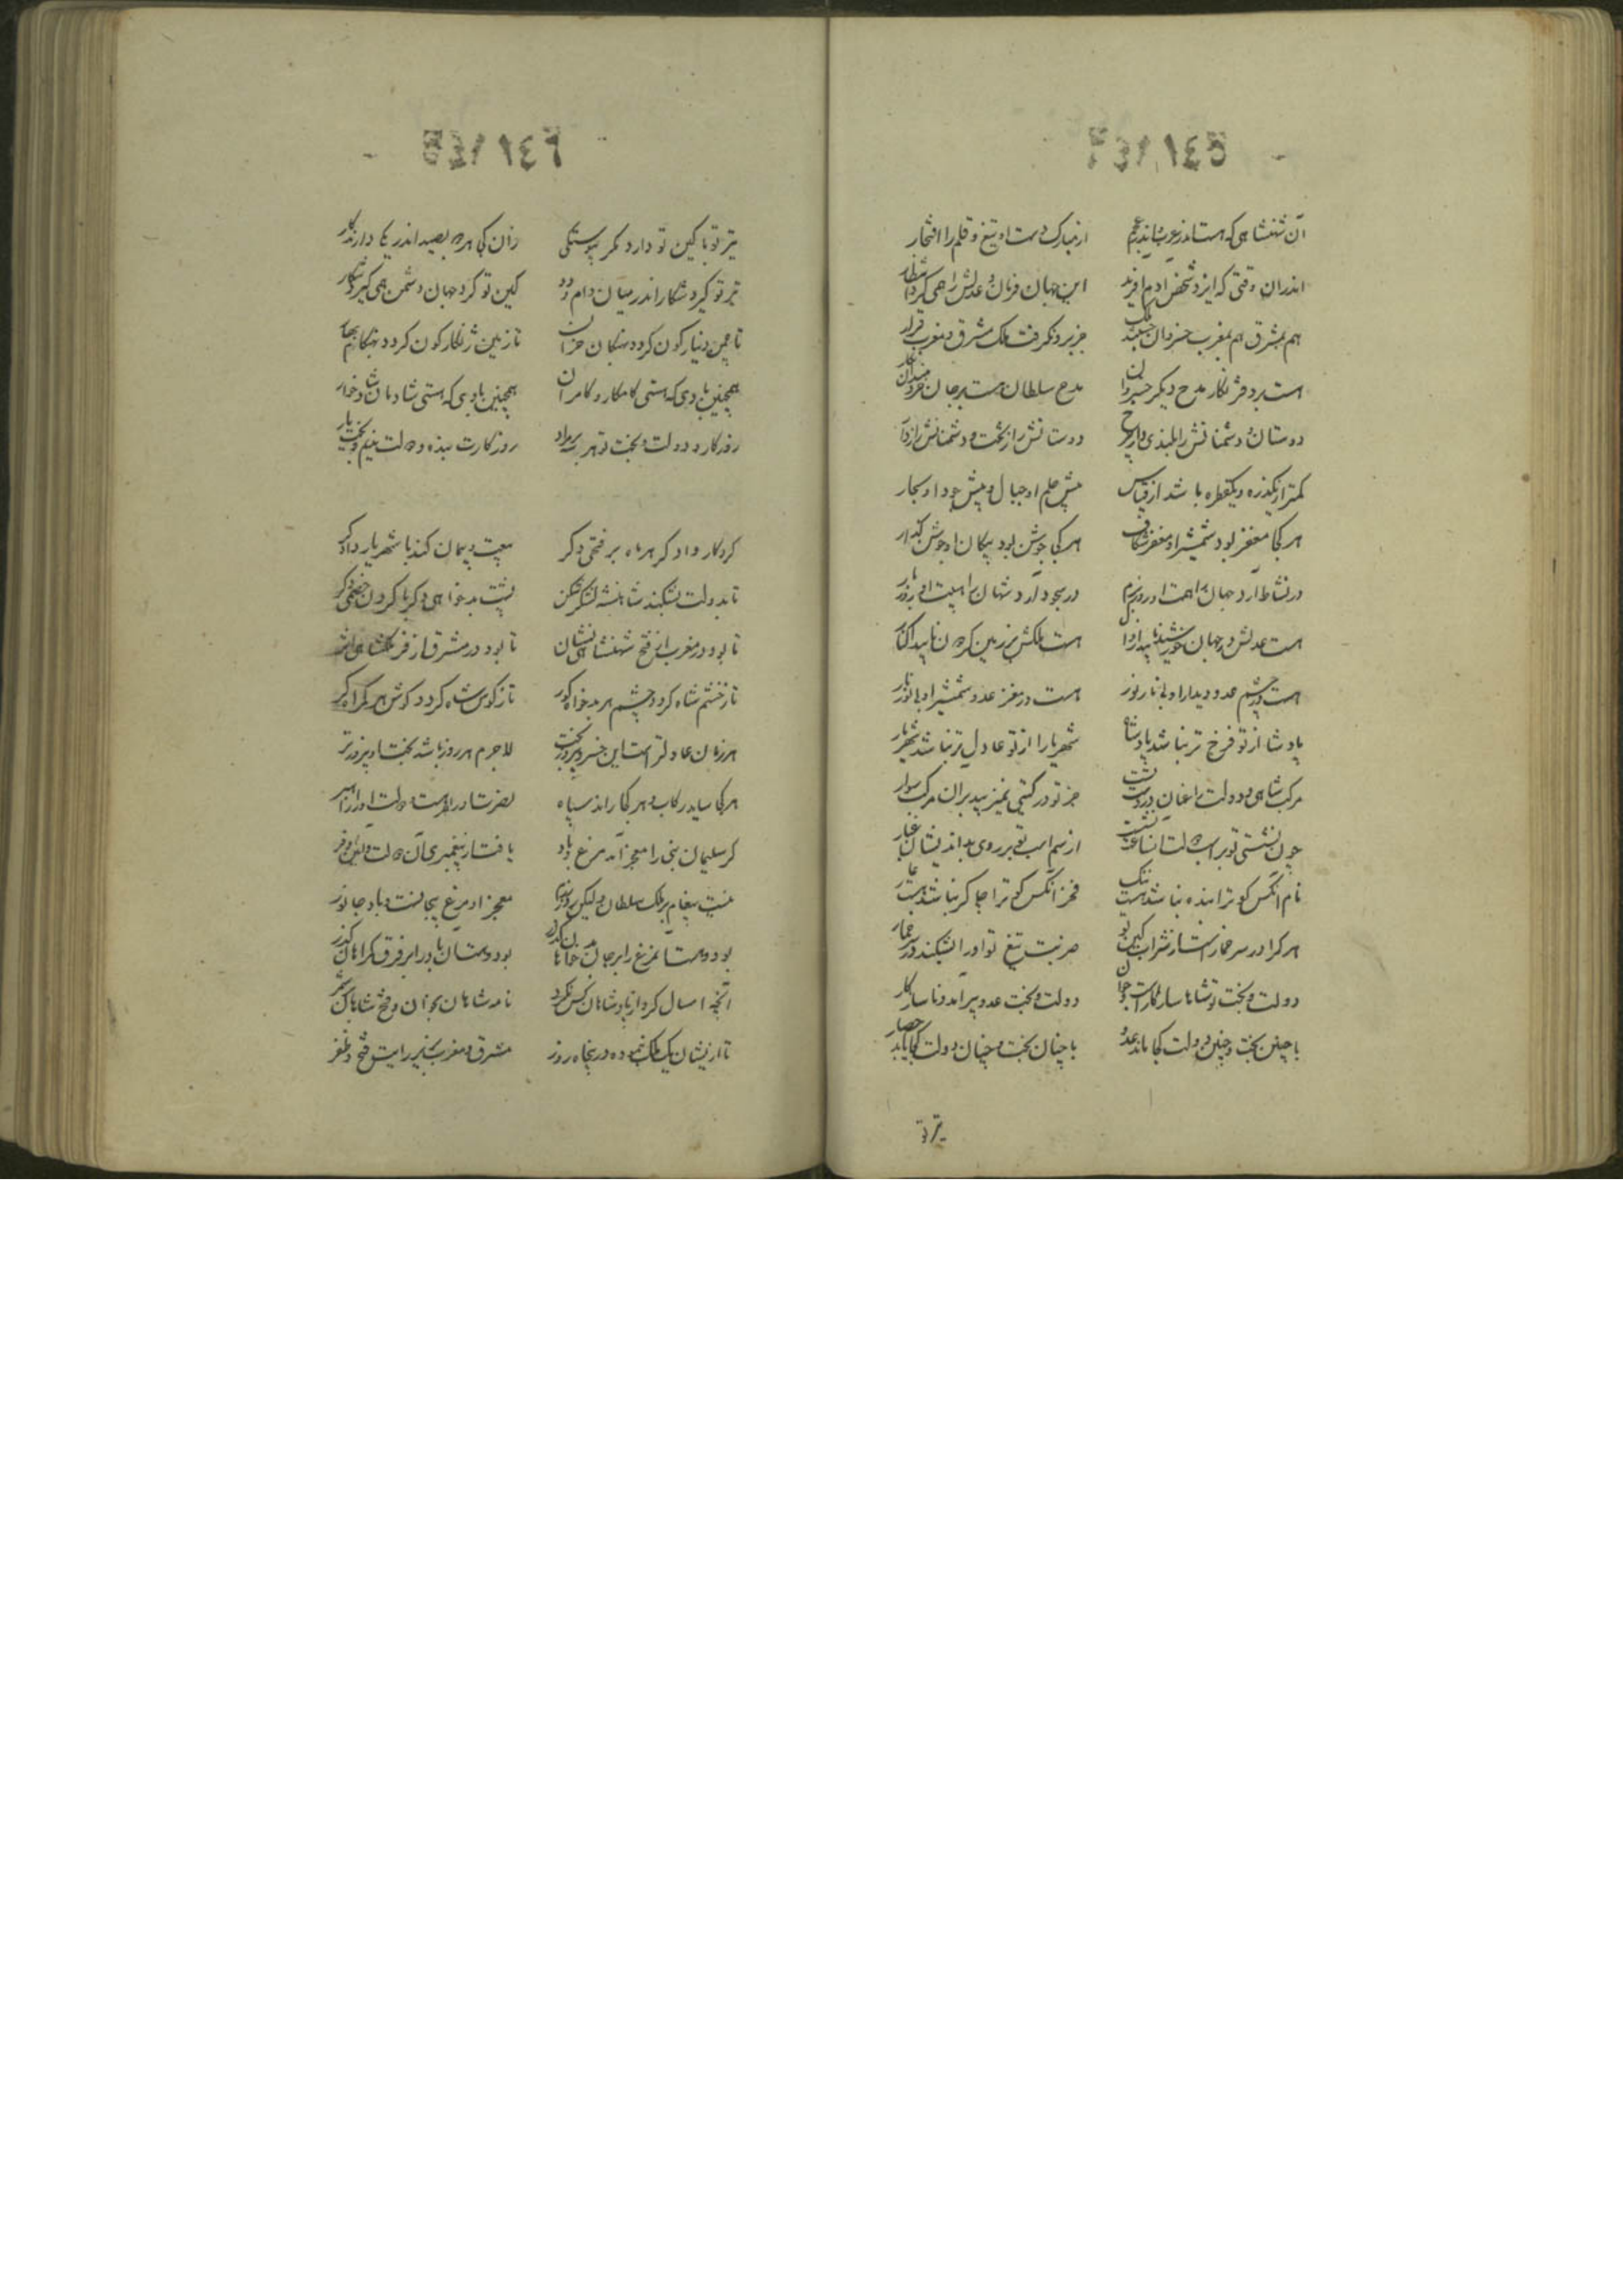 آن شهنشاهی که هست اندر عرب و اندر عجم از مبارک دست او تیغ و قلم را افتخار
اندران وقتی که ایزد شخص ادم آفرید این جهان فرمان و عدلش را همی کرد انتظار
هم بمشرق هم بمغرب خسروان جستند ملک جز برو نگرفت ملک مشرق و مغرب قرار
هست بر دفتر نگار مدح دیگر خسروان مدح سلطان هست بر جان خردمندان نگار
دوستان و دشمنانش را بلندی داد چرخ دوستانش را ز تخت و دشمنانش را ز دار
کمتر از یکذره و یکقطره باشد از قیاس پیش حلم او جبال و پیش جود او بحار
هر کجا مغفر بود شمشیر او مغفر شکاف هر کجا جوشن بود پیکان او جوشن گذار
در نشاط آرد جهان را همت او روز بزم در سجود آرد شهان را هیبت او روز بار
هست عدلش در جهان خورشید ناپیدا زوال هست ملکش بر زمین گردون ناپیدا کنار
هست در چشم عدو دیدار او بی نار نور هست در مغز عدو شمشیر او بی نور نار
پادشا از تو فرخ تر نباشد پادشاه شهریارا از تو عادل تر نباشد شهریار
مرکب شاهی و دولت را عنان در دست تست جز تو در گیتی نمیزیبد بران مرکب سوار
چون نشستی تو بر اسب دولت از سم اسب تو بر روی بداندیشان غبار
نام آنکس کو ترا بنده نباشد هست ننگ فخر آنکس کو ترا چاکر نباشد هست عار
هر کرا در سر خمارست از شراب کین تو ضربت تیغ تو او را بشکند در سر خمار
دولت و بخت تو شاها سازگارست و جوان دولت و بخت عدو پیر آمد و ناسازگار
با چنین بخت و چنین دولت کجا ماند عدو با چنان بخت و چنان دولت کجا یابد حصار
تیر تو
تیر تو با کین تو دارد مگر پیوستگی زان کجا هر دو بصید اندر یکی دارند کار
تیر تو گیرد شکار اندر میان دام و دد کین تو گرد جهان دشمن همی گیرد شکار
تا چمن دینار گون گردد بهنگام خزان تا زمین زنگار گون گردد بهنگام بهار
همچنین بادی که هستی کامکار و کامران همچنین بادی که هستی شادمان و شادخوار
روزگار و دولت و بخت تو هر سه بر مراد روزگارت بنده و دولت ندیم و بخت یار
کردگار دادگر هر ماه بر فتحی دگر بیعت و پیمان کند با شهریار دادگر
تا بدولت بشکند شاهنشه لشکر شکن پشت بدخواهی دگر یا گردن خصمی دگر
تا بود در مغرب از فتح شهنشاهی نشان تا بود در مشرق از فر ملکشاهی اثر
تا ز خشم شاه گردد چشم هر بدخواه کور تا ز کوس شاه گردد گوش هر گمراه کر
هر زمان عادلترست این خسرو پیروز بخت لاجرم هر روز باشد بخت او پیروزتر
هر کجا ساید رکاب و هر کجا راند سپاه نصرت او را هست و دولت او را راهبر
گر سلیمان نبی را معجز آمد مرغ و باد یافت از پیغمبری آن دولت و آن فر
نیست پیغامبر ملک سلطان ولیکن روز رزم معجز او مرغ بیجانست و باد جانور
بودوست آن مرغ را بر جان گذر بودوست آن باد را بر فرق گمراهان گذر
آنچه امسال کرد از پادشاهان کس نکرد نامه شاهان بخوان و فتح شاهان کن
تا ازیشان یک ملک بوده در پنجاه روز مشرق و مغرب بزیر رایت فتح و ظفر